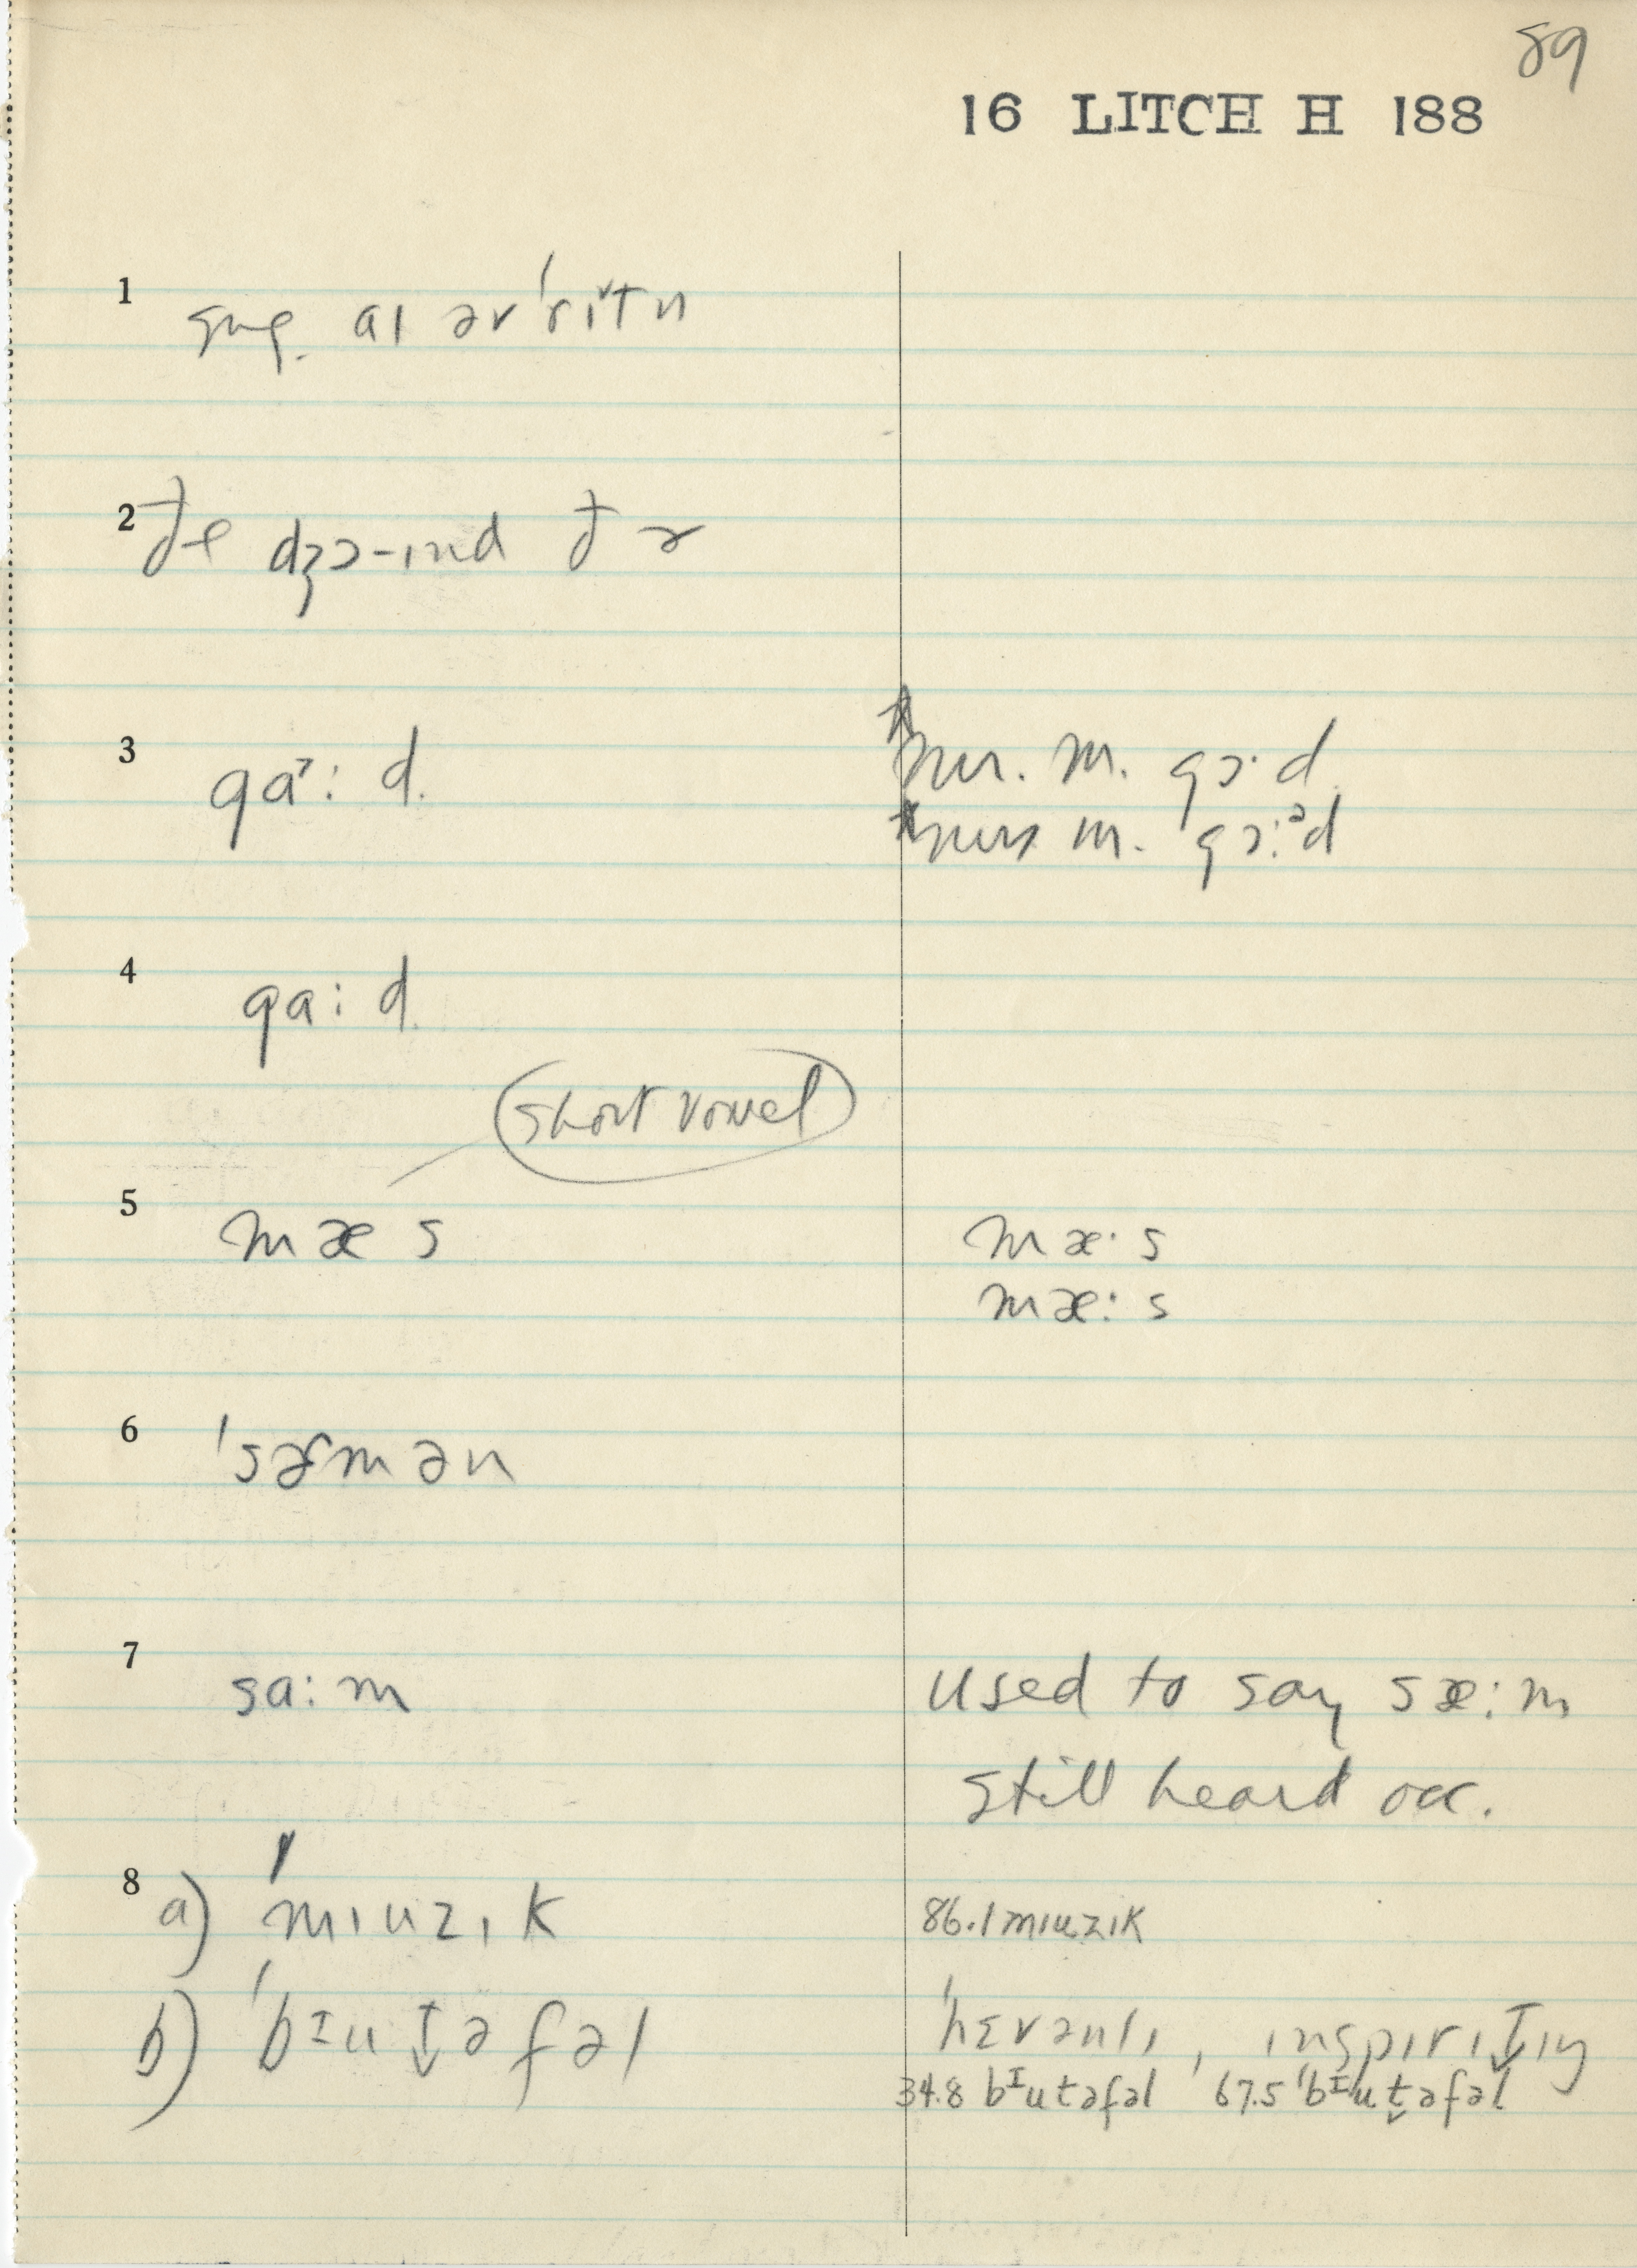 89
16 LITCH H 188
1 sug. aɪ əv ˈrɪ̌tn
2 ðe dʒɔ-ɪnd ðɚ
3 gaʾ: d.
m. gɔ· d.
m. gɔ:ᵊd
4 ga: d.
short vowel
5 mæ s
mæ· s
mæ: s
6 ˈsɚmən
7 sa: m
used to say sæ: m
still heard occ.
8 a) ˈmɪuzɪk
86.1 mɪuzɪk
b) ˈbᴵut̬əfəl
ˈhɛvənlɪ, ɪnspɪrɪt̬ɪŋ
34.8 bᴵutəfəl 67.5 ˈbᴵut̬əfəl